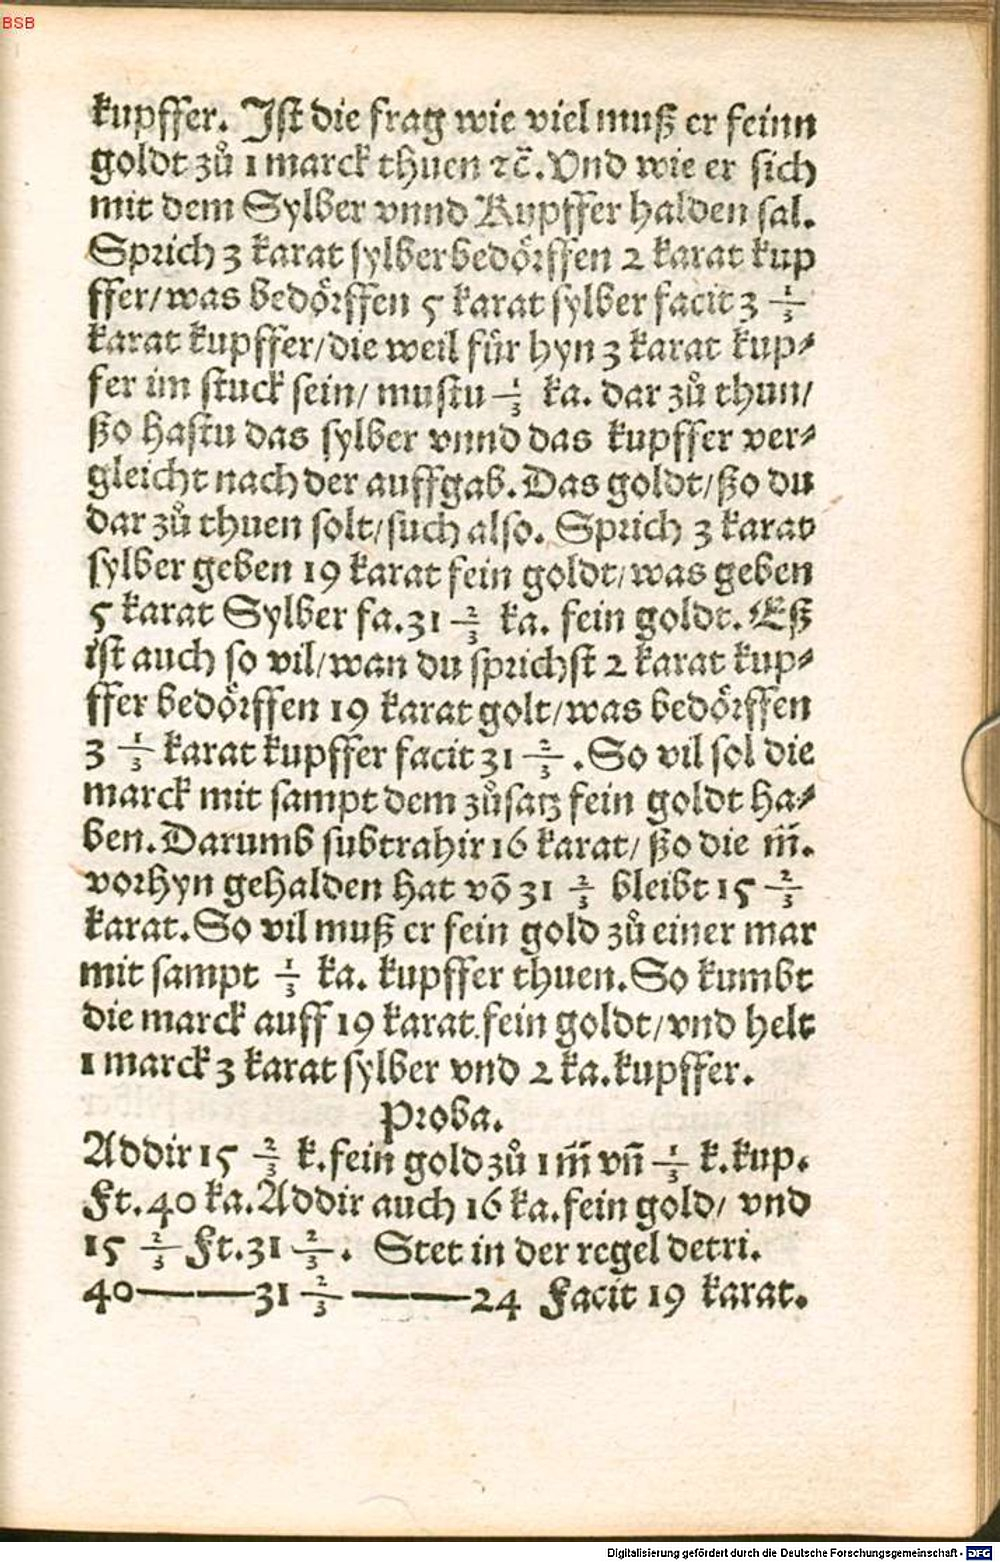 BSB
kupffer. Ist die frag wie viel muß er feinn
goldt zů 1 marck thuen ꝛc̃. Vnd wie er sich
mit dem Sylber vnnd Kupffer halden sal.
Sprich 3 karat sylber bedörffen 2 karat kup
ffer/was bedörffen 5 karat sylber facit 3 1/3
karat kupffer/die weil für hyn 3 karat kup⸗
fer im stuck sein/ mustu 1/3 ka. dar zů thun/
ßo hastu das sylber vnnd das kupffer ver⸗
gleicht nach der auffgab. Das goldt/ßo du
dar zů thuen solt/such also. Sprich 3 karat
sylber geben 19 karat fein goldt/was geben
5 karat Sylber fa. 31 2/3 ka. fein goldt. Eß
ist auch so vil/wan du sprichst 2 karat kup⸗
ffer bedörffen 19 karat golt/was bedörffen
3 1/3 karat kupffer facit 31 2/3. So vil sol die
marck mit sampt dem zůsatz fein goldt ha⸗
ben. Darumb subtrahir 16 karat/ ßo die m̃.
vorhyn gehalden hat võ 31 2/3 bleibt 15 2/3
karat. So vil muß er fein gold zů einer mar
mit sampt 1/3 ka. kupffer thuen. So kumbt
die marck auff 19 karat fein goldt/vnd helt
1 marck 3 karat sylber vnd 2 ka. kupffer.
Proba.
Addir 15 2/3 k. fein gold zů 1 m̃ vñ 1/3 k. kup.
Ft. 40 ka. Addir auch 16 ka. fein gold/ vnd
15 2/3 Ft. 31 2/3. Stet in der regel detri.
40——31 2/3 ——24 Facit 19 karat.
Digitalisierung gefördert durch die Deutsche Forschungsgemeinschaft - DFG